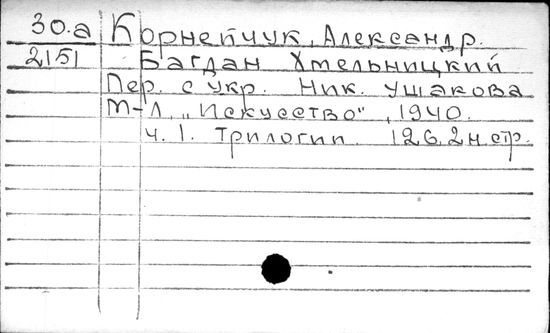 30.а Корнейчук, Александр.
2151 Багдан Хмельницкий
Пер. с укр. Ник. Ушакова
М-Л, "Искусство", 1940.
ч. 1. трилогии. 126, 2 н. стр.